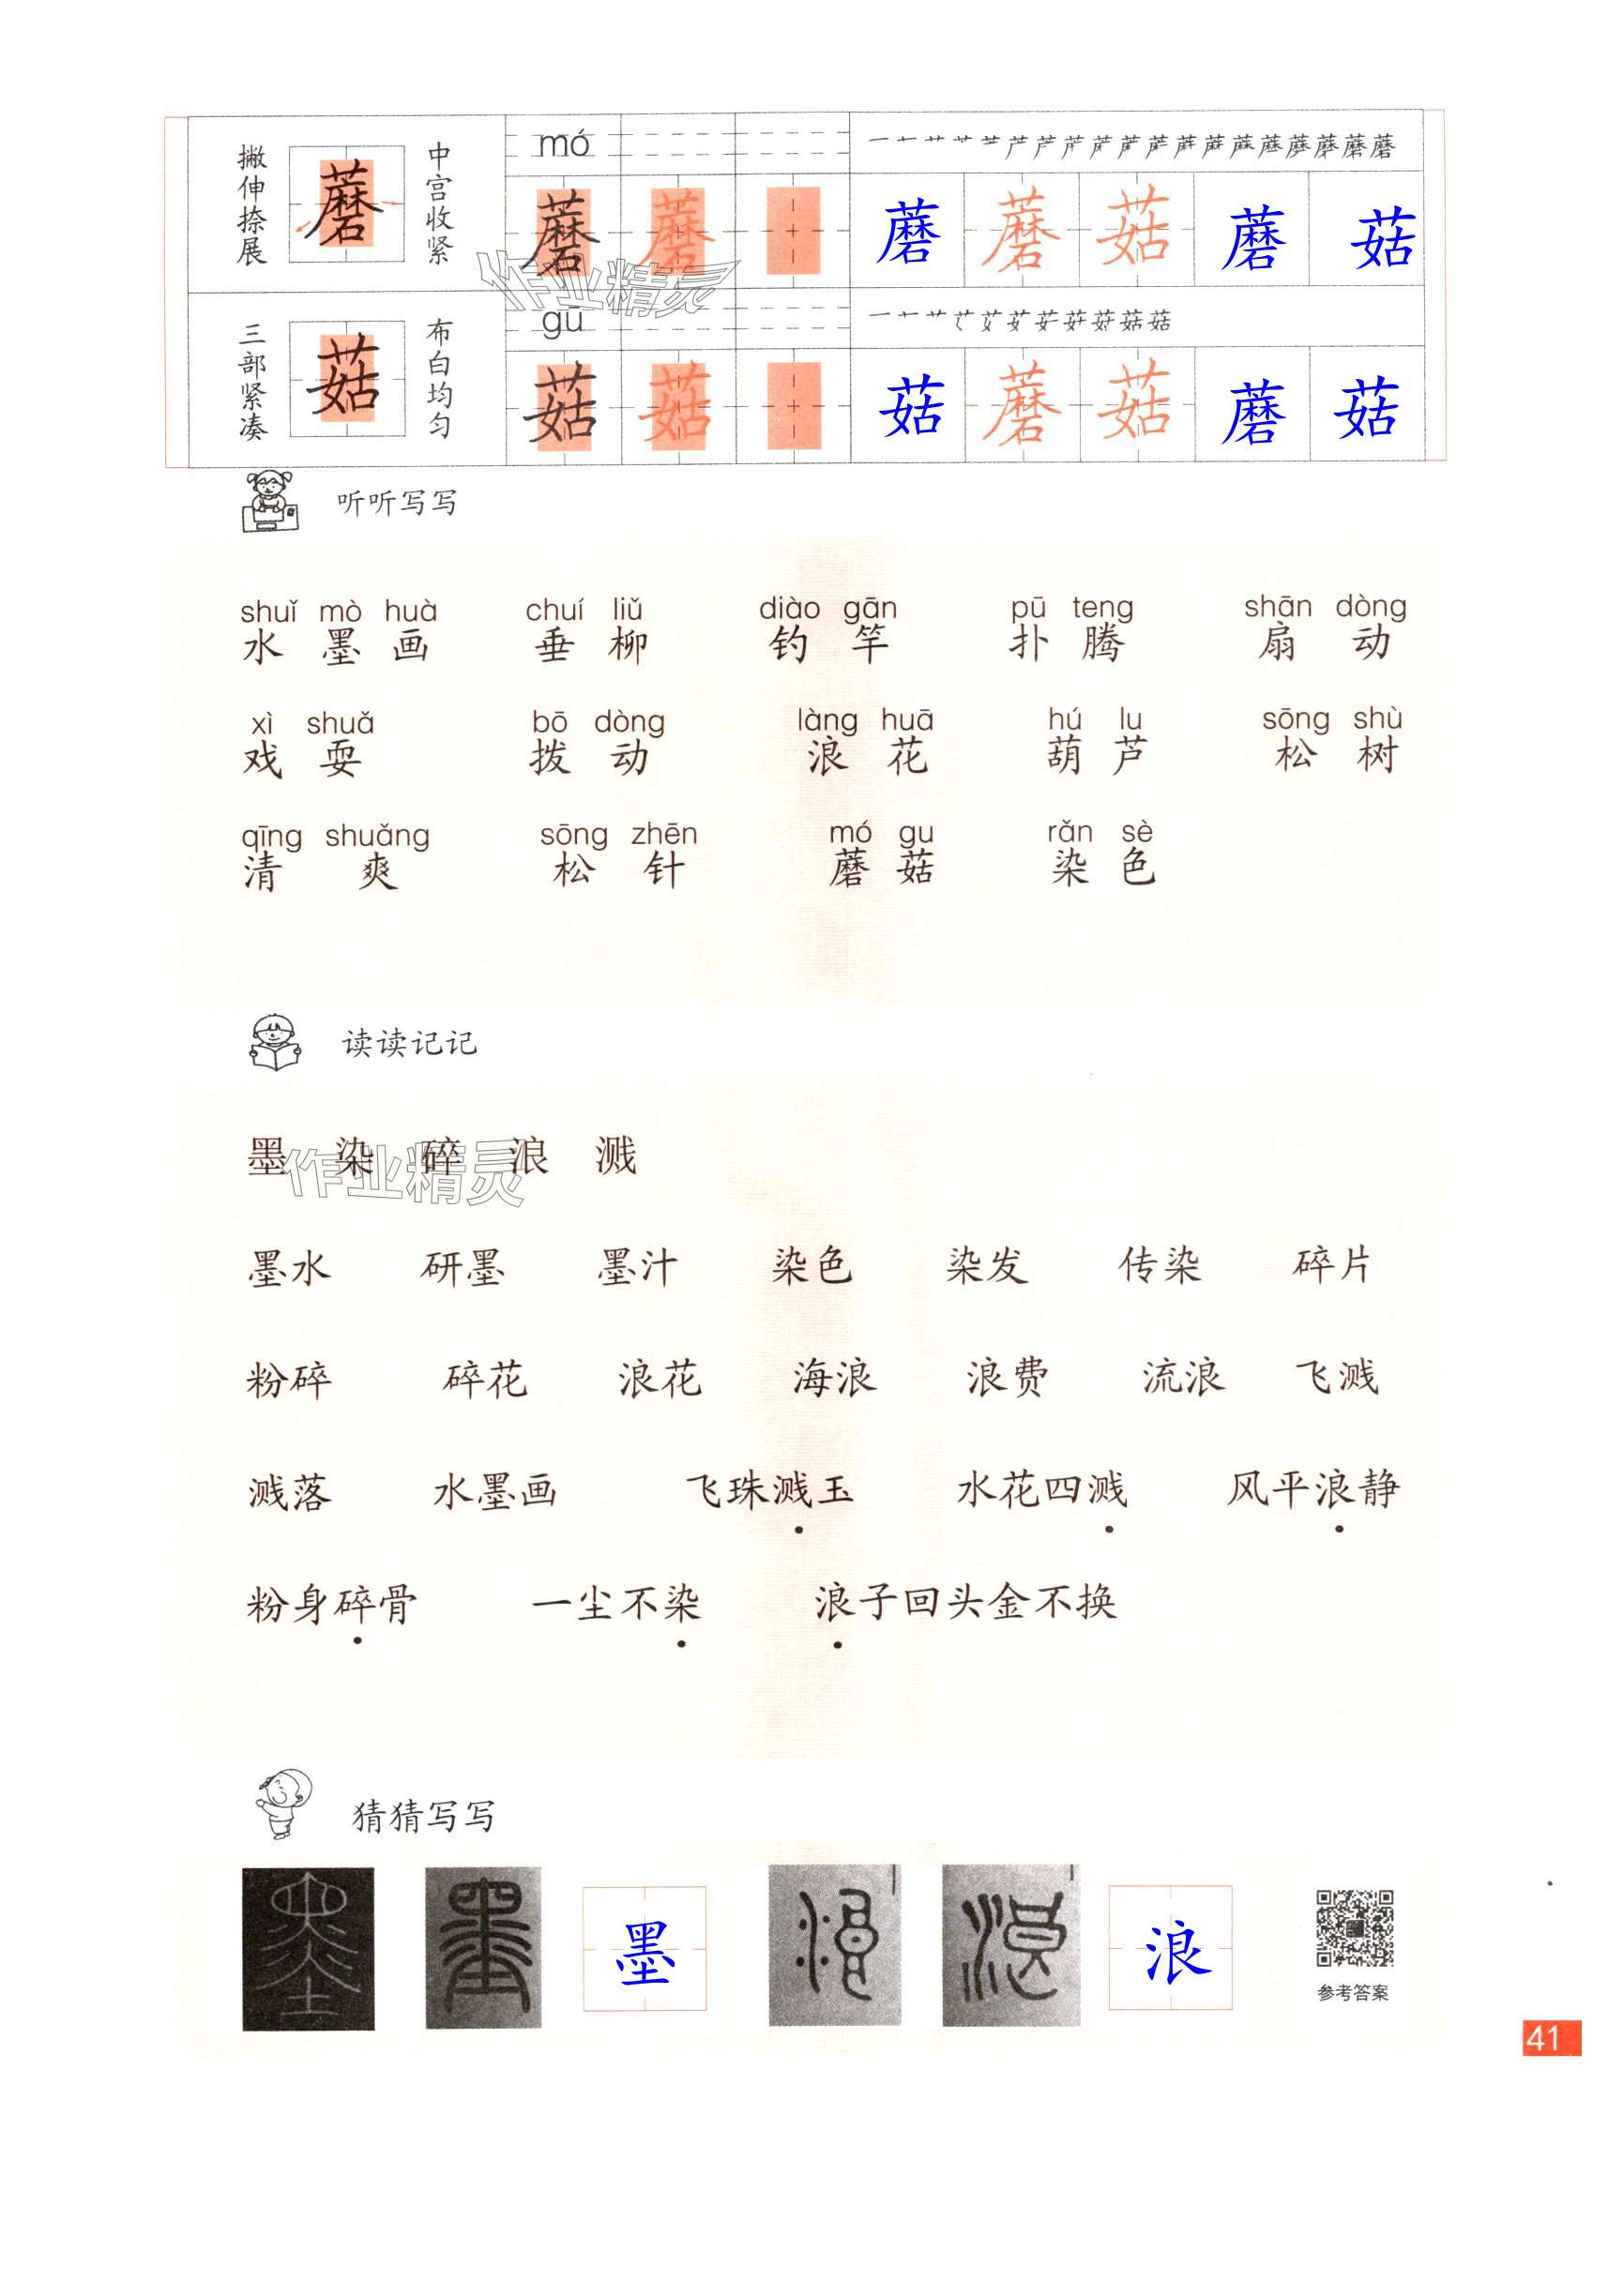 撇伸捺展 蘑 中宫收紧 mó
蘑 蘑 蘑 蘑 菇 蘑 菇
三部紧凑 菇 布白均匀 gū
菇 菇 菇 蘑 菇 蘑 菇
作业精灵
听听写写
shuǐ mò huà chuí liǔ diào gān pū teng shān dòng
水 墨 画 垂 柳 钓 竿 扑 腾 扇 动
xì shuǎ bō dòng làng huā hú lu sōng shù
戏 耍 拨 动 浪 花 葫 芦 松 树
qīng shuǎng sōng zhēn mó gu rǎn sè
清 爽 松 针 蘑 菇 染 色
读读记记
墨 染 碎 浪 溅
作业精灵
墨水 研墨 墨汁 染色 染发 传染 碎片
粉碎 碎花 浪花 海浪 浪费 流浪 飞溅
溅落 水墨画 飞珠溅玉 水花四溅 风平浪静
粉身碎骨 一尘不染 浪子回头金不换
猜猜写写
墨 墨 墨 浪 浪 浪
参考答案
41